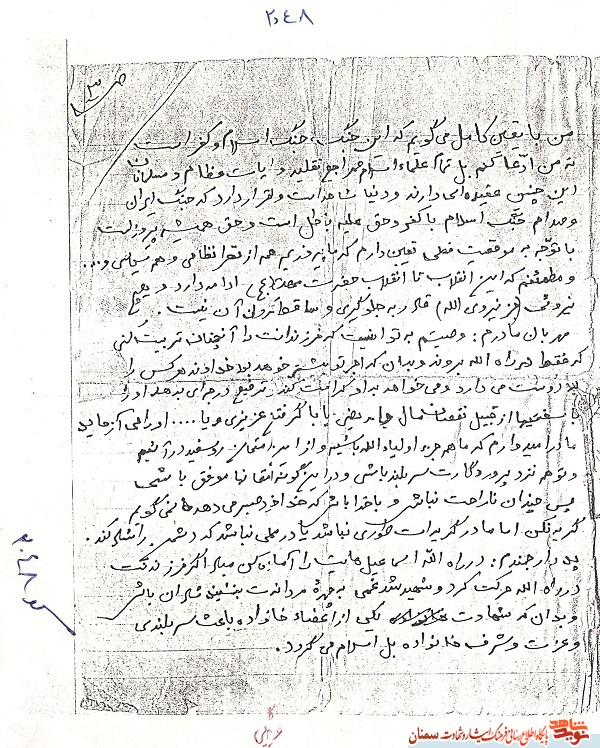 ۲۰۴۸
صفحه ۳
من با یقین کامل می‌گویم که این جنگ، جنگ اسلام و کفر است
نه من ادعا کنم بل تمام علماء اسلام مراجع تقلید و آیات عظام و مسلمانان
این چنین عقیده‌ای دارند و دنیا شاهد است و اقرار دارد که جنگ ایران
و صدام جنگ اسلام با کفر و حق علیه باطل است و حق همیشه پیروز است
با توجه به موقعیت فعلی یقین دارم که ما پیروزیم هم از نظر نظامی و هم سیاسی و....
و مطمئنم که این انقلاب تا انقلاب حضرت مهدی (عج) ادامه دارد و هیچ
نیروئی (جز نیروی الله) قادر به جلوگیری و ساقط کردن آن نیست.
مهربان مادرم: وصیتم به تو اینست که فرزندانت را آنچنان تربیت کنی
که فقط در راه الله بروند و بدان که اجر تو بیشتر خواهد بود خداوند هر کس را
که دوست می دارد و می خواهد به او کرامت کند ترفیع درجه‌ای بدهد او را
با سختیها از قبیل نقصان مال یا مریضی یا با گرفتن عزیزی و یا .... او را می آزماید
مادر امیدوارم که ما هم جزء اولیاء الله باشیم و از این امتحان روسفید در آئیم
و تو هم نزد پروردگارت سربلند باشی و در این گونه امتحانها موفق باشی
پس چندان ناراحت نباش و با خدا باش که خدا خود صبر می دهد نمی گویم
گریه نکن اما مادر گریه‌ات طوری نباشد یا در محلی نباشد که دشمن را شاد کند.
پدر ارجمندم: در راه الله اسماعیل هایت را آماده کن مبادا اگر فرزندت
در راه الله حرکت کرد و شهید شد غمی به چهره مردانه‌ات بنشیند شادان باش
و بدان که شهادت یکی از اعضاء خانواده باعث سربلندی
و عزت و شرف خانواده بل اسلام می گردد.
نوید شاهد
پایگاه اطلاع رسانی فرهنگ ایثار و شهادت سمنان